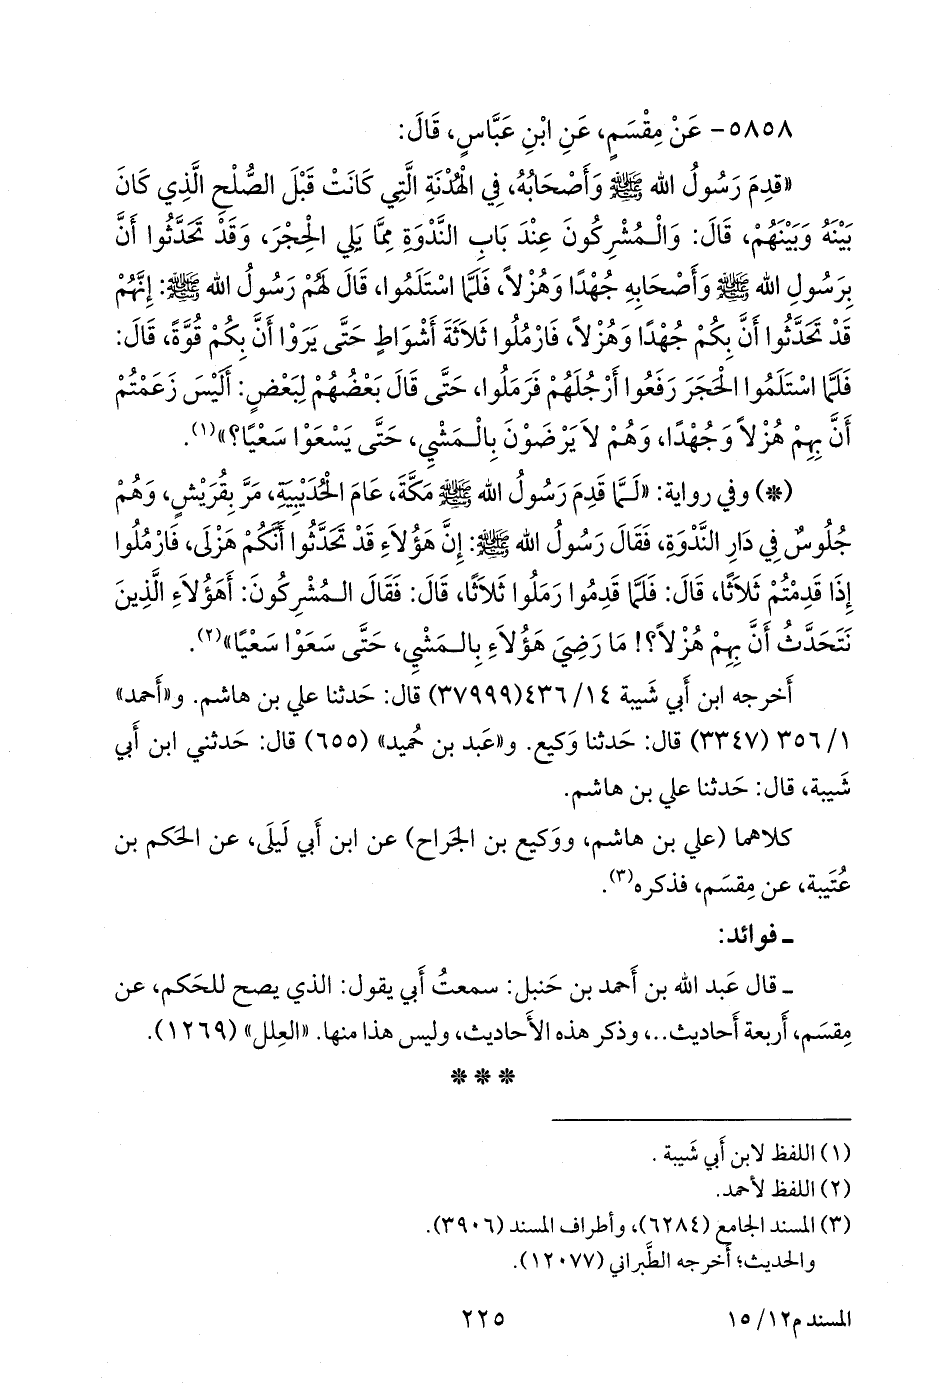 ٥٨٥٨- عَنْ مِقْسَمٍ، عَنِ ابْنِ عَبَّاسٍ، قَالَ:
«قدِمَ رَسُولُ الله ﷺ وَأَصْحَابُهُ، فِي الْهُدْنَةِ الَّتِي كَانَتْ قَبْلَ الصُّلْحِ الَّذِي كَانَ
بَيْنَهُ وَبَيْنَهُمْ، قَالَ: وَالْـمُشْرِكُونَ عِنْدَ بَابِ النَّدْوَةِ مِمَّا يَلِي الْحِجْرَ، وَقَدْ تَحَدَّثُوا أَنَّ
بِرَسُولِ الله ﷺ وَأَصْحَابِهِ جُهْدًا وَهُزْلاً، فَلَمَّا اسْتَلَمُوا، قَالَ لَهُمْ رَسُولُ الله ﷺ: إِنَّهُمْ
قَدْ تَحَدَّثُوا أَنَّ بِكُمْ جُهْدًا وَهُزْلاً، فَارْمُلُوا ثَلاَثَةَ أَشْوَاطٍ حَتَّى يَرَوْا أَنَّ بِكُمْ قُوَّةً، قَالَ:
فَلَمَّا اسْتَلَمُوا الْحَجَرَ رَفَعُوا أَرْجُلَهُمْ فَرَمَلُوا، حَتَّى قَالَ بَعْضُهُمْ لِبَعْضٍ: أَلَيْسَ زَعَمْتُمْ
أَنَّ بِهِمْ هُزْلاً وَجُهْدًا، وَهُمْ لاَ يَرْضَوْنَ بِالْـمَشْيِ، حَتَّى يَسْعَوْا سَعْيًا؟»(١).
(*) وفي رواية: «لَـمَّا قَدِمَ رَسُولُ الله ﷺ مَكَّةَ، عَامَ الْحُدَيْبِيَةِ، مَرَّ بِقُرَيْشٍ، وَهُمْ
جُلُوسٌ فِي دَارِ النَّدْوَةِ، فَقَالَ رَسُولُ الله ﷺ: إِنَّ هَؤُلاَءِ قَدْ تَحَدَّثُوا أَنَّكُمْ هَزْلَى، فَارْمُلُوا
إِذَا قَدِمْتُمْ ثَلاَثًا، قَالَ: فَلَمَّا قَدِمُوا رَمَلُوا ثَلاَثًا، قَالَ: فَقَالَ الْـمُشْرِكُونَ: أَهَؤُلاَءِ الَّذِينَ
نَتَحَدَّثُ أَنَّ بِهِمْ هُزْلاً؟! مَا رَضِيَ هَؤُلاَءِ بِالْـمَشْيِ، حَتَّى سَعَوْا سَعْيًا»(٢).
أَخرجه ابن أَبي شَيبة ١٤/ ٤٣٦(٣٧٩٩٩) قال: حَدثنا علي بن هاشم. و«أَحمد»
١/ ٣٥٦ (٣٣٤٧) قال: حَدثنا وَكيع. و«عَبد بن حُميد» (٦٥٥) قال: حَدثني ابن أَبي
شَيبة، قال: حَدثنا علي بن هاشم.
كلاهما (علي بن هاشم، ووَكيع بن الجَراح) عن ابن أَبي لَيلَى، عن الحَكم بن
عُتَيبة، عن مِقسَم، فذكره(٣).
ـ فوائد:
ـ قال عَبد الله بن أَحمد بن حَنبل: سمعتُ أَبي يقول: الذي يصح للحَكم، عن
مِقسَم، أَربعة أَحاديث..، وذكر هذه الأَحاديث، وليس هذا منها. «العِلل» (١٢٦٩).
* * *
(١) اللفظ لابن أَبي شَيبة .
(٢) اللفظ لأحمد.
(٣) المسند الجامع (٦٢٨٤)، وأطراف المسند (٣٩٠٦).
والحديث؛ أخرجه الطَّبراني (١٢٠٧٧).
المسند م١٢/ ١٥
٢٢٥